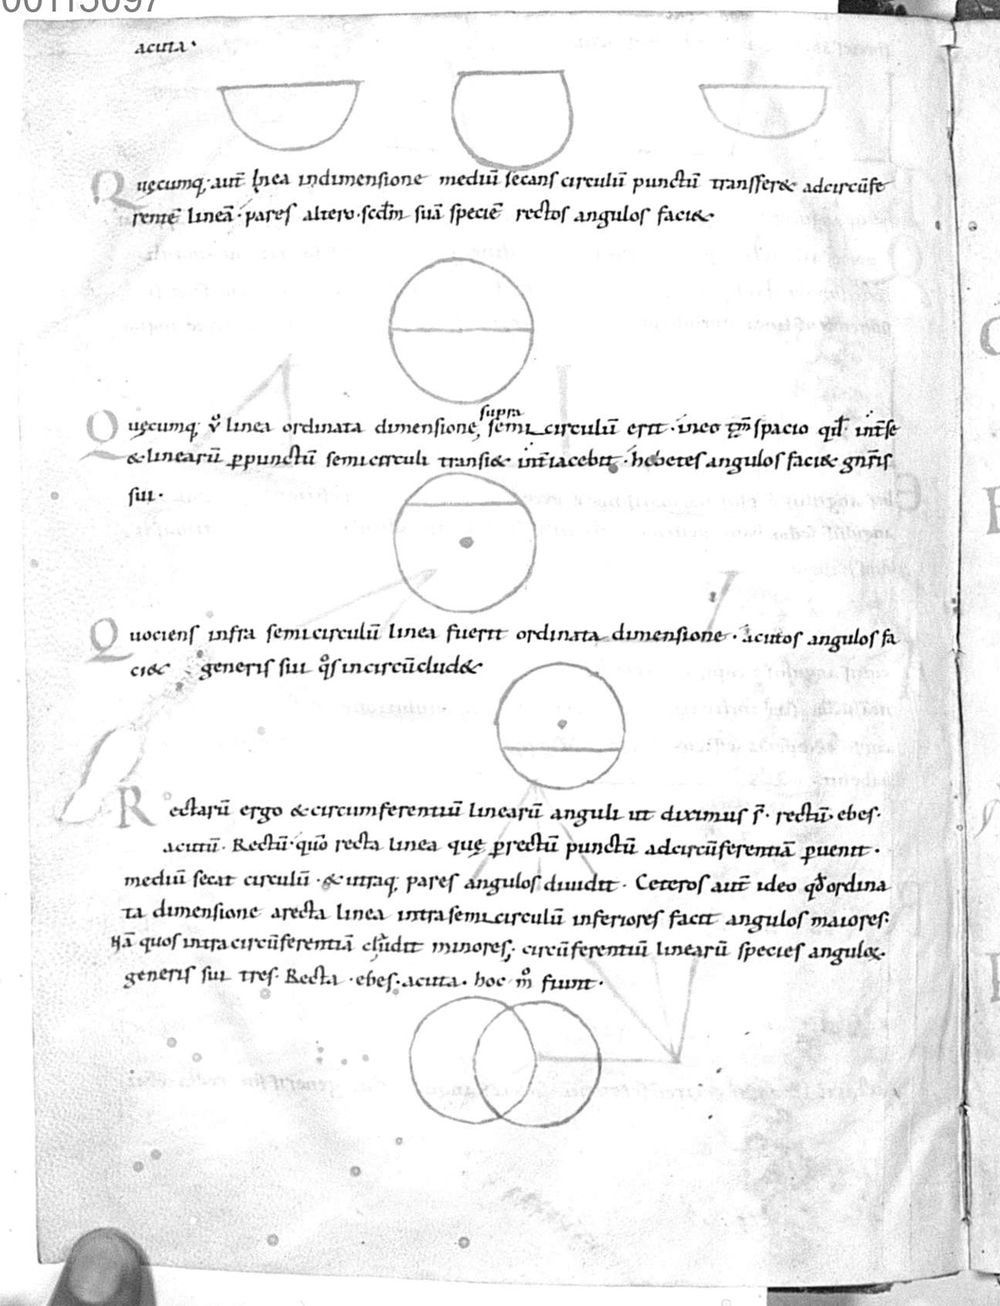 00115097
acuta·
Quęcumq; aut̄ linea indimensione mediū secans circulū punctū transser& adcircūfe
rentē lineā· pares altero· scd̄m suā speciē rectos angulos faci&·
supra
Quęcumq; v̊ linea ordinata dimensione, semicirculū erit· ineo spacio qđ int̄ se
& linearū ꝑpunctū semicirculi transi& int̄iacebit· hebetes angulos faci& gn̄ris
sui·
Quociens infra semicirculū linea fuerit ordinata dimensione· acutos angulos fa
ci& generis sui q̊s incircūclud&
Rectarū ergo & circumferentiū linearū anguli ut diximus s̄· rectū· ebes·
acutū· Rectū· quō recta linea quę ꝑrectū punctū adcircūferentiā ꝑuenit·
mediū secat circulū· & utraq; pares angulos diuidit· Ceteros aut̄ ideo qđ ordina
ta dimensione arecta linea intra semicirculū inferiores facit angulos maiores·
Nā quos intra circūferentiā cludit minores; circūferentiū linearū species angulo&·
generis sui tres· Recta· ebes· acuta· hoc m̊ fiunt·